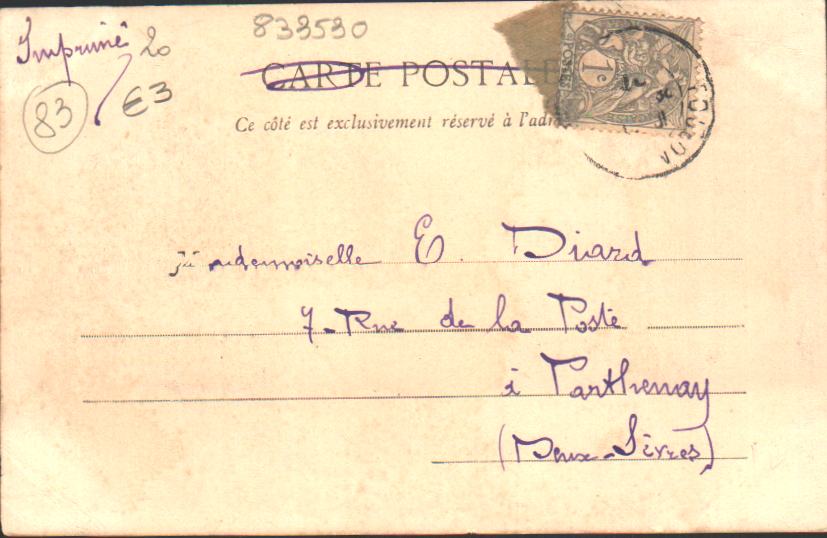 Imprimé 20
833530
83 E3
CARTE POSTALE
Ce côté est exclusivement réservé à l'adr
1c
POSTES
Mademoiselle E. Diard
7-Rue de la Poste
à Parthenay
(Deux-Sèvres)